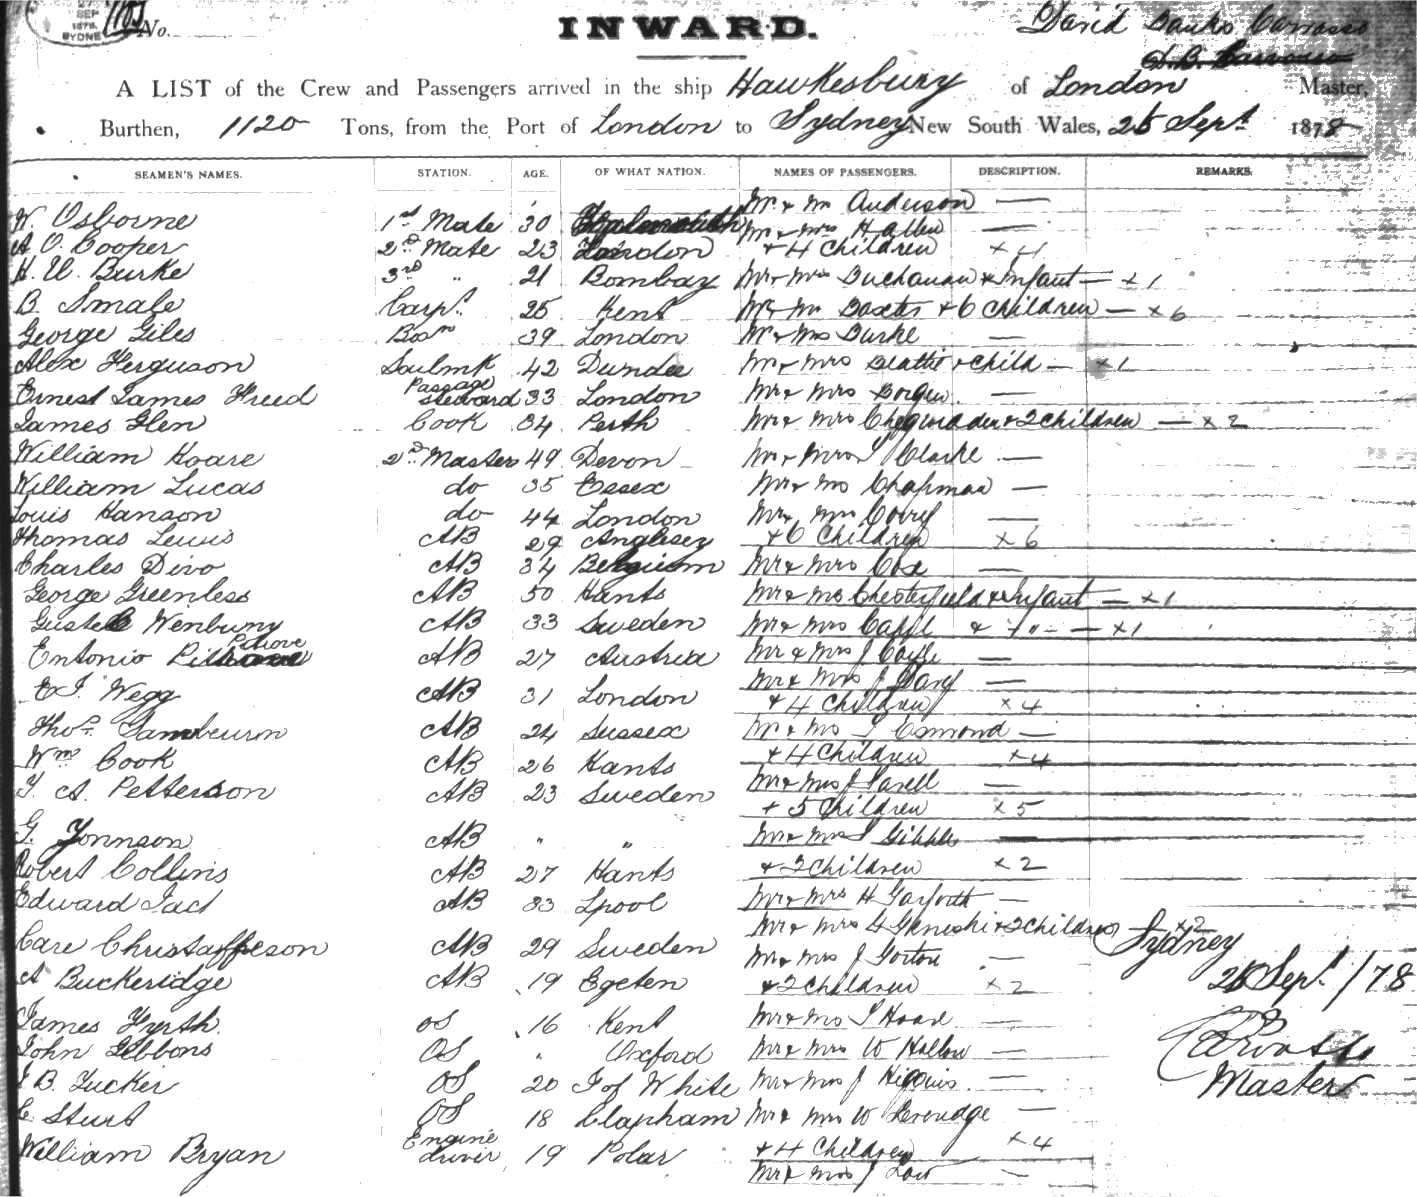 SEP
1878
SYDNEY
No.
INWARD.
David Banks Carvosso
D. B. Carvosso
A LIST of the Crew and Passengers arrived in the ship Hawkesbury of London Master,
Burthen, 1120 Tons, from the Port of London to Sydney New South Wales, 25 Sept. 1878
SEAMEN'S NAMES. STATION. AGE. OF WHAT NATION. NAMES OF PASSENGERS. DESCRIPTION. REMARKS.
Mr & Mrs Anderson —
W. Osborne 1st Mate 30 Mr & Mrs Hallen —
A O. Cooper 2nd Mate 23 London & 4 Children x 4
H. W. Burke 3rd " 21 Bombay Mr & Mrs Buchanan & Infant — x 1
B. Smale Carp. 25 Kent Mr & Mrs Baxter & 6 Children — x 6
George Giles Bosn 39 London Mr & Mrs Burke —
Alex Ferguson Sailmk 42 Dundee Mr & Mrs Beattie & Child — x 1
Ernest James Freed Passage Steward 33 London Mr & Mrs Borgen —
James Glen Cook 34 Perth Mr & Mrs & 2 Children — x 2
William Hoare 2nd Masters 49 Devon Mr & Mrs Clarke —
William Lucas do 35 Essex Mr & Mrs Chapman —
Louis Hanson do 44 London Mr & Mrs
Thomas Lewis AB 29 Anglesey & 6 Children x 6
Charles Divo AB 34 Belgium Mr & Mrs Cox —
George Greenless AB 50 Hants Mr & Mrs Chesterfield & Infant — x 1
Wenbury AB 33 Sweden Mr & Mrs & " — x 1
Entonio Petrove AB 27 Austria Mr & Mrs J —
Mr & Mrs J Davy —
E J. Wegg AB 31 London & 4 Children x 4
Thos. AB 24 Sussex Mr & Mrs Esmond —
Wm Cook AB 26 Hants & 4 Children x 4
Petterson AB 23 Sweden Mr & Mrs J —
& 5 Children x 5
G. Jonnson AB " " Mr & Mrs —
Robert Collins AB 27 Hants & 2 Children x 2
Edward AB 33 Lpool Mr & Mrs H Garforth —
Mr & Mrs & 2 Children — x 2
AB 29 Sweden Mr & Mrs J Gorton —
A Buckeridge AB 19 & 2 Children x 2
James Fryth OS 16 Kent Mr & Mrs Hoare —
John Gibbons OS " Oxford Mr & Mrs W Hallow —
J B. Tucker OS 20 I of White Mr & Mrs J Higgins —
C Sturt OS 18 Clapham Mr & Mrs W Leveridge —
William Bryan Engine driver 19 Polar & 4 Children x 4
Mr & Mrs J Low —
Sydney
25 Sept. /78
Carvosso
Master